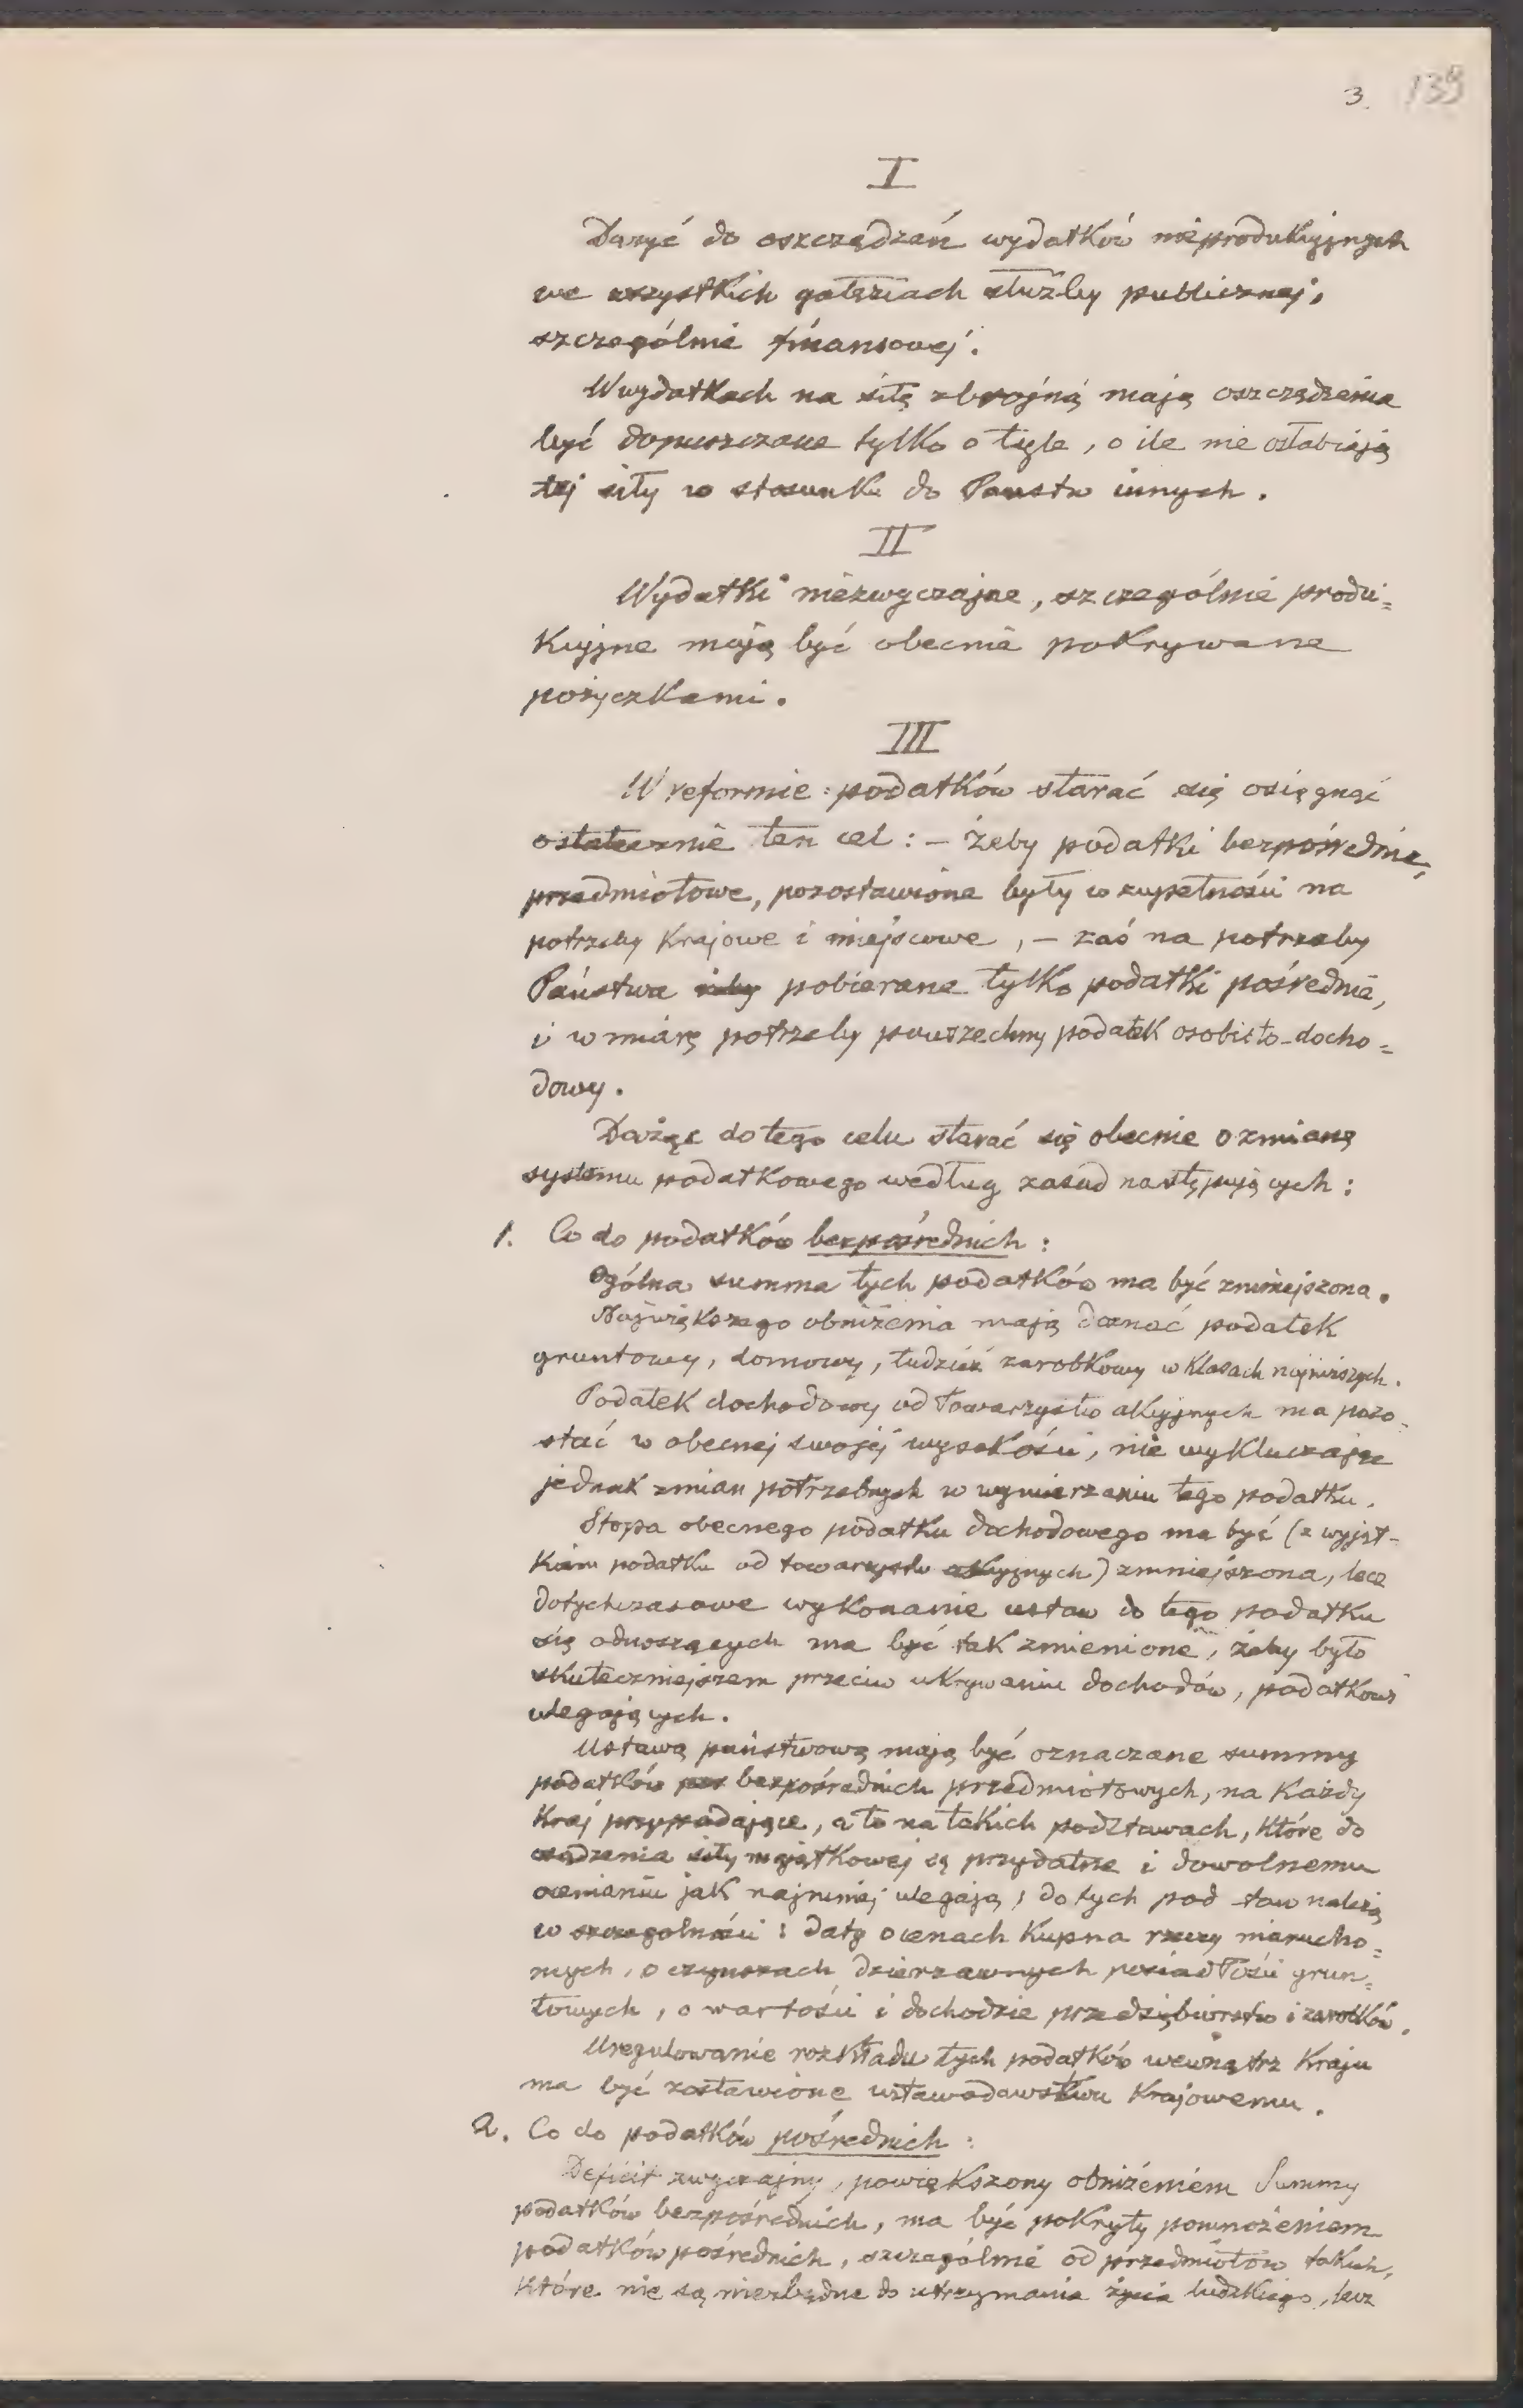 3. 139
I
Dążyć do oszczędzań wydatków nieprodukcyjnych
we wszystkich gałęziach służby publicznej,
szczególnie finansowej.
W wydatkach na siłę zbrojną mają oszczędzenia
być dopuszczane tylko o tyle, o ile nie osłabiają
tej siły w stosunku do Państw innych.
II
Wydatki niezwyczajne, szczególnie produ=
kcyjne mają być obecnie pokrywane
pożyczkami.
III
W reformie podatków starać się osięgnąć
ostatecznie ten cel: – żeby podatki bezpośrednie,
przedmiotowe, pozostawione były w zupełności na
potrzeby krajowe i miejscowe, – zaś na potrzeby
Państwa pobierane tylko podatki pośrednie,
i w miarę potrzeby powszechny podatek osobisto-docho=
dowy.
Dążąc do tego celu starać się obecnie o zmianę
systemu podatkowego według zasad następujących:
1. Co do podatków bezpośrednich:
Ogólna summa tych podatków ma być zmniejszona.
Największego obniżenia mają doznać podatek
gruntowy, domowy, tudzież zarobkowy w klasach najniższych.
Podatek dochodowy od towarzystw akcyjnych ma pozo-
stać w obecnej swojej wysokości, nie wykluczając
jednak zmian potrzebnych w wymierzaniu tego podatku.
Stopa obecnego podatku dochodowego ma być (z wyjąt-
kiem podatku od towarzystw akcyjnych) zmniejszona, lecz
dotychczasowe wykonanie ustaw do tego podatku
się odnoszących ma być tak zmienione, żeby było
skuteczniejszem przeciw ukrywaniu dochodów, podatkowi
ulegających.
Ustawą państwową mają być oznaczane summy
podatków bezpośrednich przedmiotowych, na każdy
kraj przypadające, a to na takich podstawach, które do
osądzenia siły majątkowej są przydatne i dowolnemu
ocenianiu jak najmniej ulegają; do tych pod staw należą
w szczególności: daty o cenach kupna rzeczy nierucho=
mych, o czynszach dzierżawnych posiadłości grun=
towych, o wartości i dochodzie przedsiębiorstw i zarobków.
Uregulowanie rozkładu tych podatków wewnątrz kraju
ma być zostawione ustawodawstwu krajowemu.
2. Co do podatków pośrednich:
Deficit zwyczajny, powiększony obniżeniem Summy
podatków bezpośrednich, ma być pokryty pomnożeniem
podatków pośrednich, szczególnie od przedmiotów takich,
które nie są niezbędne do utrzymania życia ludzkiego, lecz